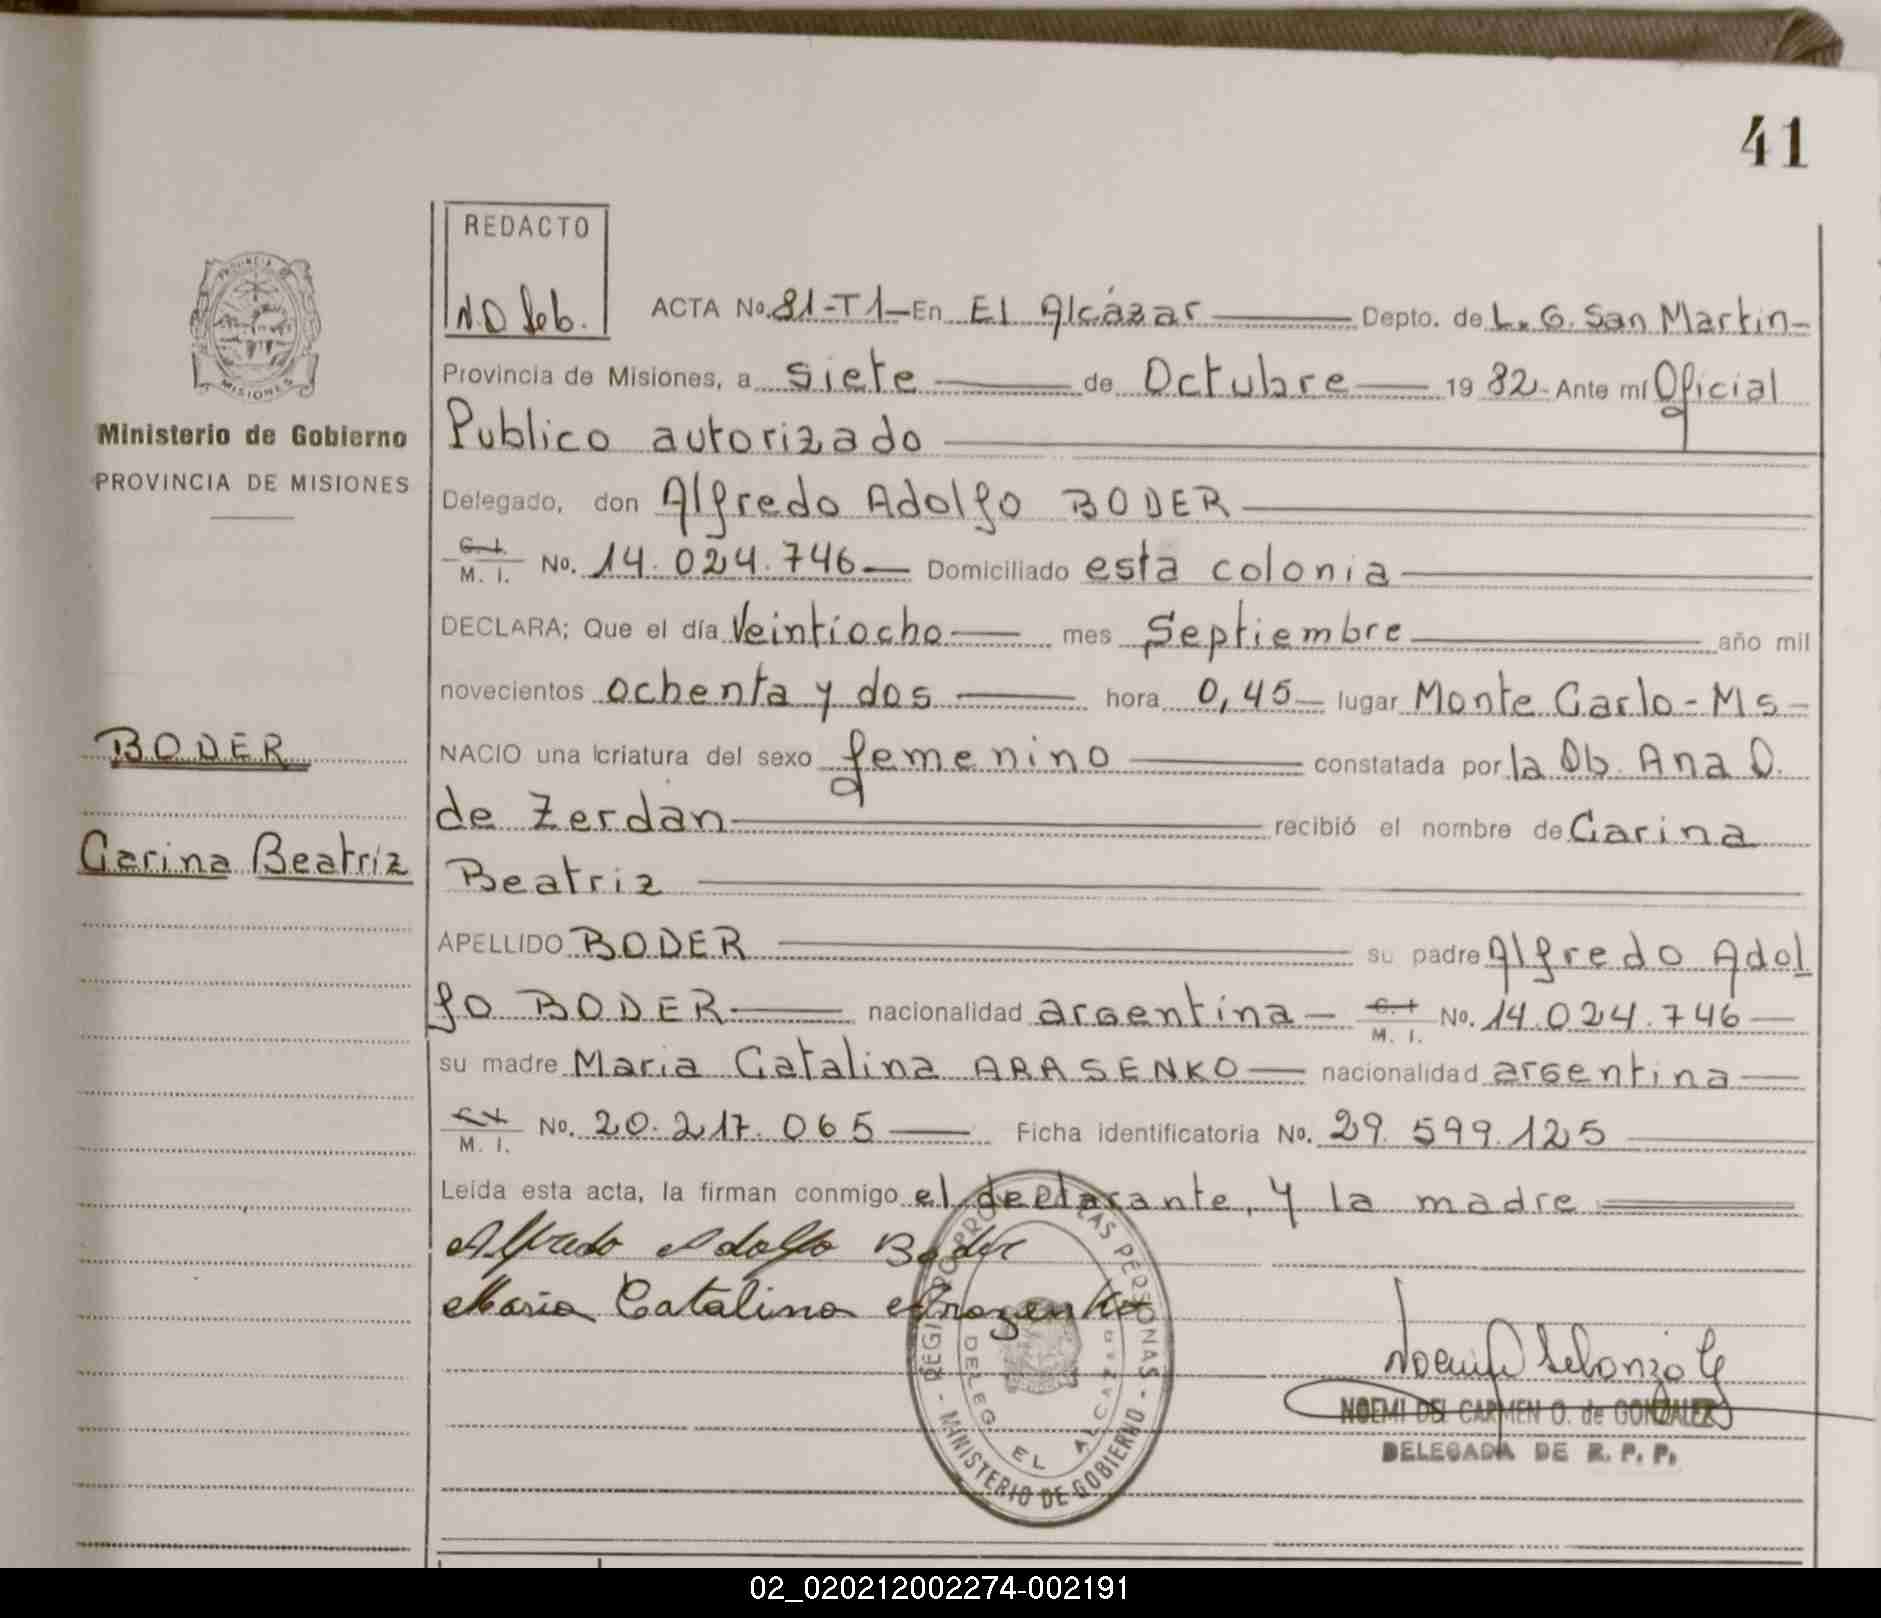 41
REDACTO
PROVINCIA DE
MISIONES
ACTA No. 81-T1- En El Alcázar Depto. de L. G. San Martin-
Provincia de Misiones, a siete de Octubre 1982- Ante mí Oficial
Ministerio de Gobierno
Publico autorizado
PROVINCIA DE MISIONES
Delegado, don Alfredo Adolfo BODER
C. I.
M. I. No. 14.024.746 Domiciliado esta colonia
DECLARA; Que el día Veintiocho mes Septiembre año mil
novecientos ochenta y dos hora 0,45 lugar Monte Carlo-Ms-
BODER
NACIO una criatura del sexo femenino constatada por la Ob. Ana O.
de Zerdan recibió el nombre de Carina
Carina Beatriz
Beatriz
APELLIDO BODER su padre Alfredo Adol
fo BODER nacionalidad argentina - C. I.
M. I. No. 14.024.746
su madre Maria Catalina ARASENKO nacionalidad argentina
M. I. No. 20.217.065 Ficha identificatoria No. 29.599.125
Leída esta acta, la firman conmigo el declarante, y la madre
Alfredo Adolfo Boder
Maria Catalina Arazenko
REGISTRO PRO LAS PERSONAS - MINISTERIO DE GOBIERNO -
DELEG. EL ALCAZAR
NOEMI DEL CARMEN O. de GONZALEZ
DELEGADA DE R. P. P.
02_020212002274-002191